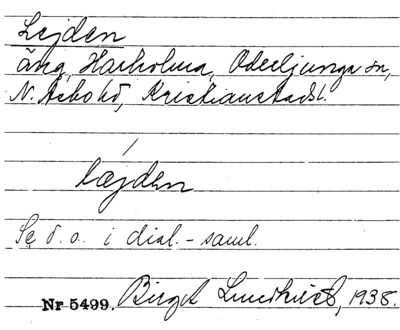 Lejden
äng, Harholma, Oderljunga sn,
N. Åsbo hd, Kristianstads l.
læjden
Se d. o. i dial.-saml.
Nr 5499. Birgit Lundkvist, 1938.